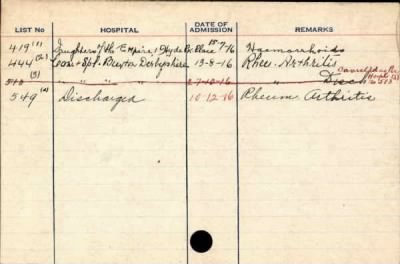 LIST NO HOSPITAL DATE OF ADMISSION REMARKS
419 (1) Daughters of the Empire, 1 Hyde Pk Place 15-7-16 Haemorrhoids
444 (2) Con. Hpl. Buxton Derbyshire 13-8-16 Rheu. Arthritis
(3) " " " 27-10-16 " Disch
549 (4) Discharged 10-12-16 Rheum Arthritis